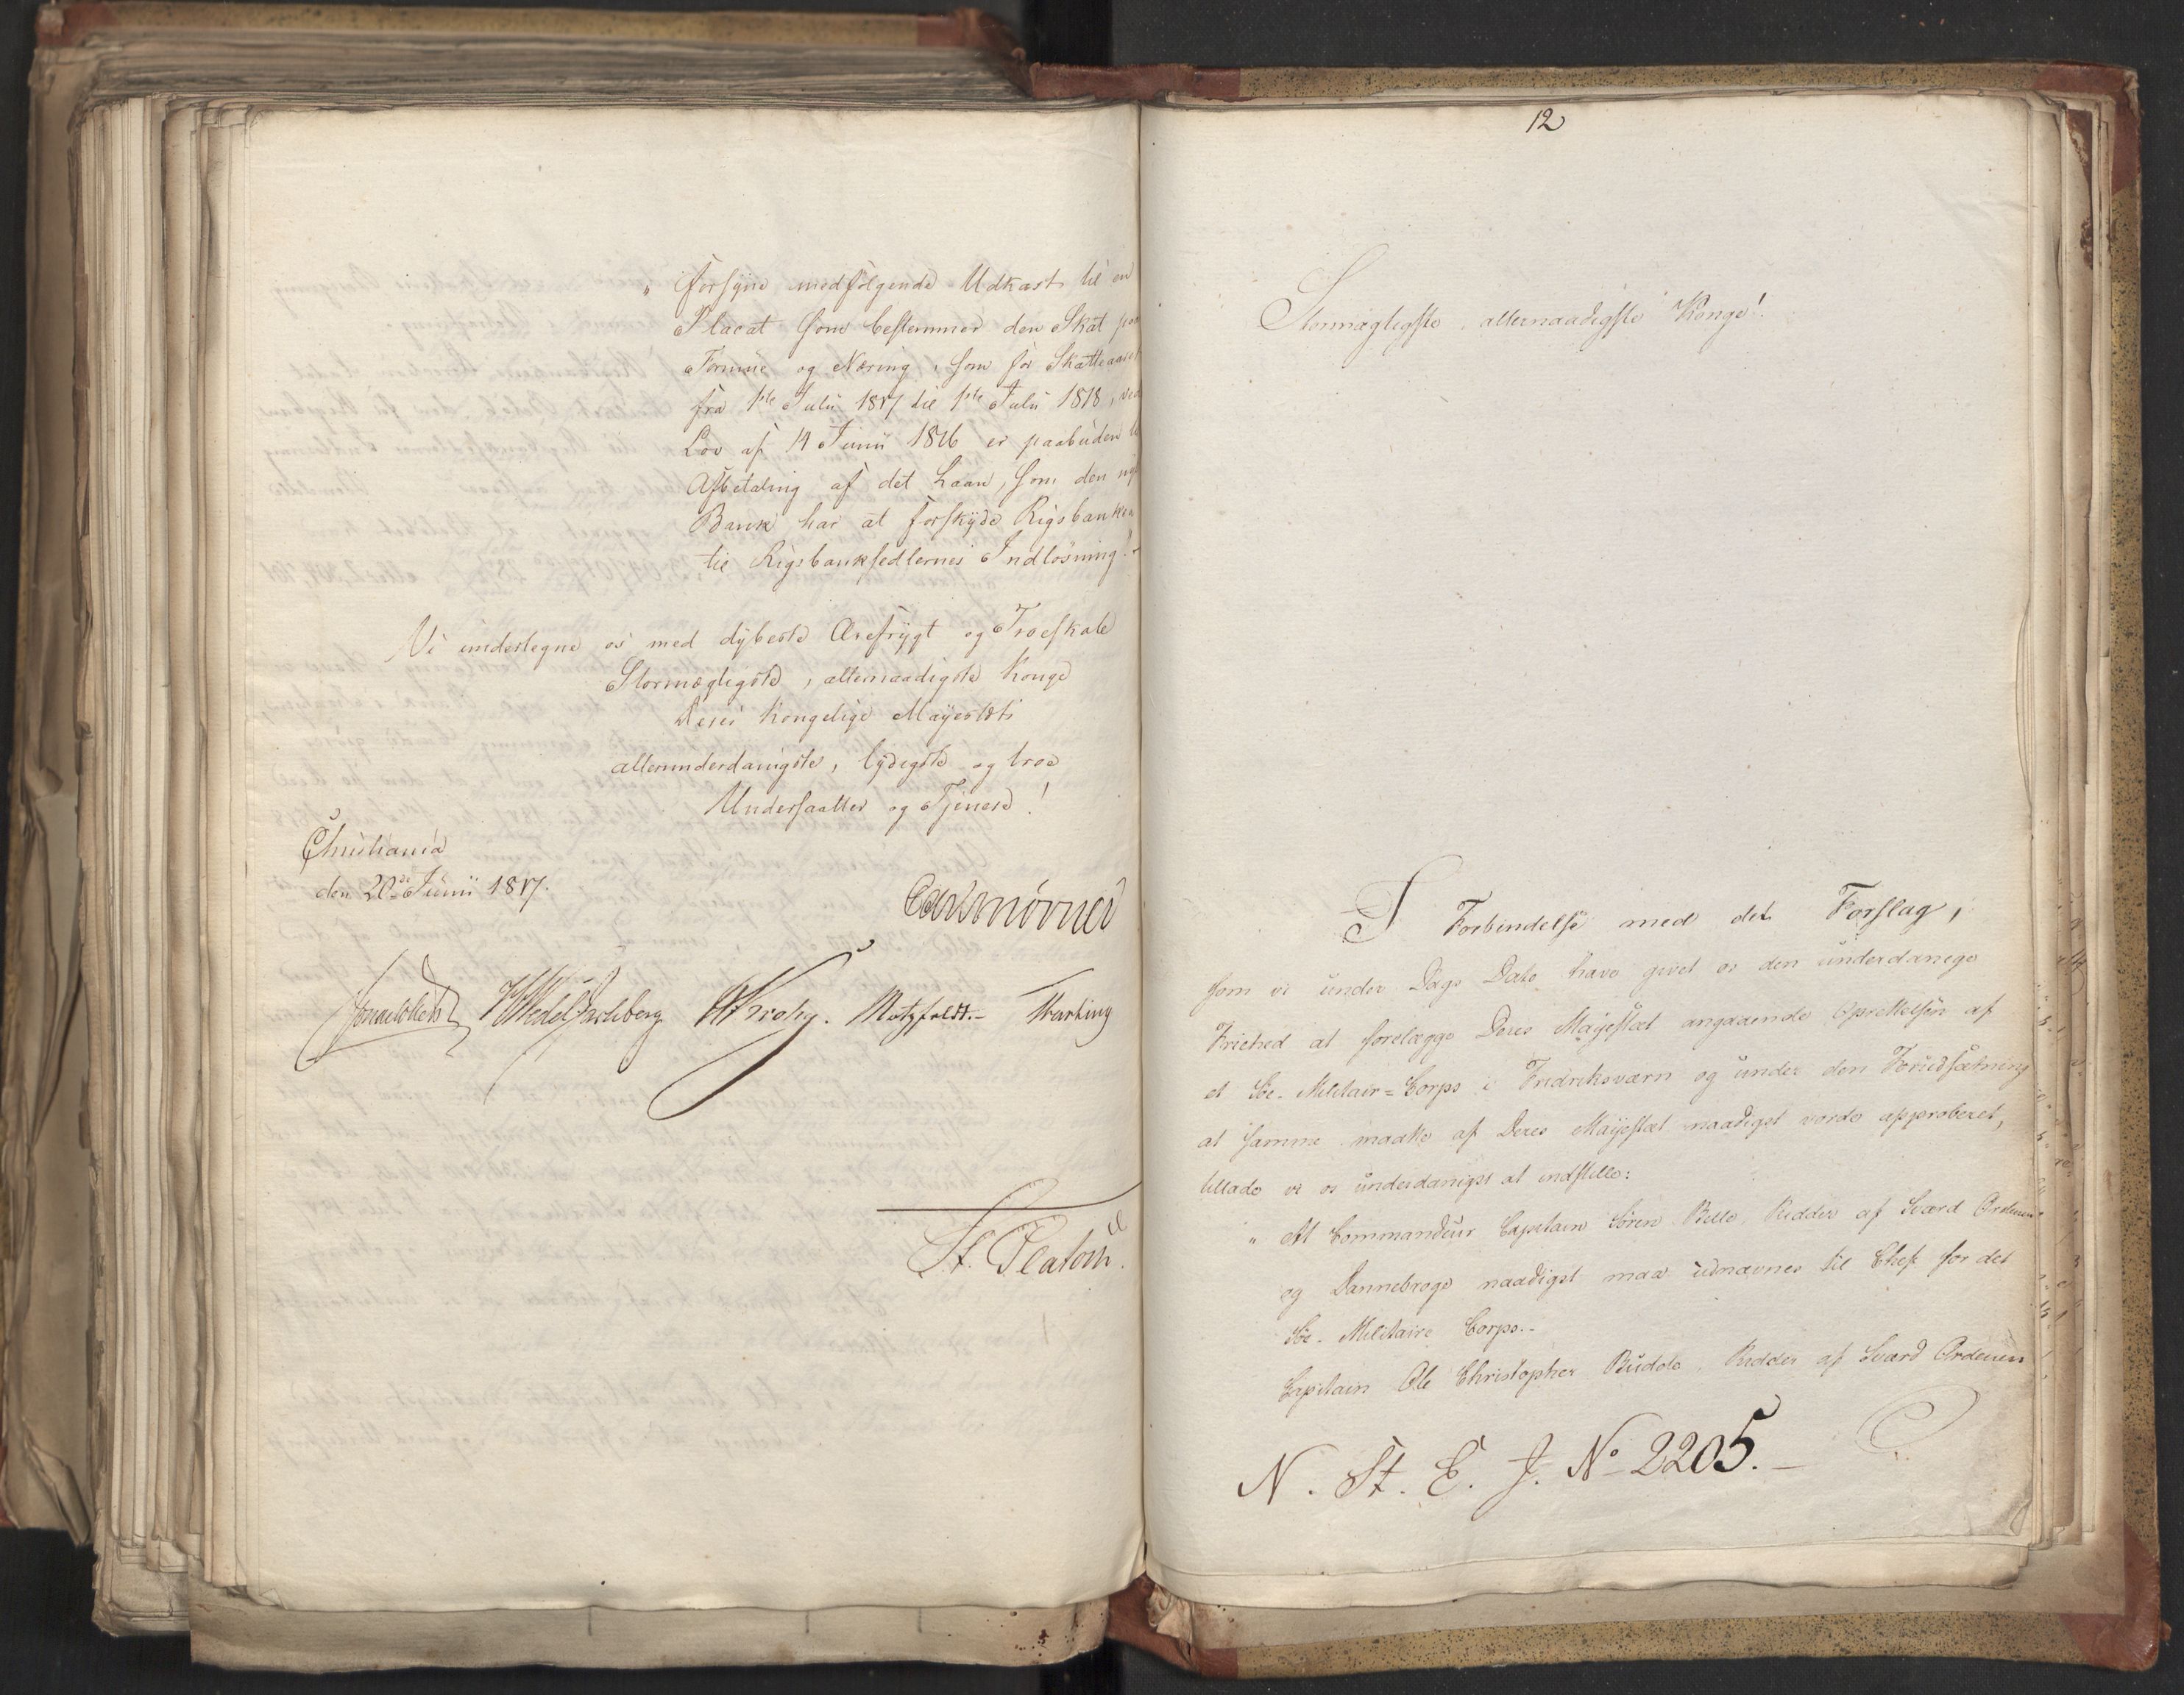 " forsÿne medfølgende Udkast til en
Placat som bestemmer den Skat paa
Formue og Næring, som for Skatteaaret
fra 1ste Julii 1817 til 1ste Julii 1818, ved
Lov af 14 Junii 1816 er paabuden til
Afbetaling af det Laan, som den nÿe
Bank har at forskÿde Rigsbanken
til Rigsbanksedlernes Indløsning."
Vi undertegne os med dÿbeste Ærefrÿgt og Troeskab
Stormægtigste, allernaadigste Konge
Deres Kongelige Mayestæts
allerunderdanigste, lÿdigste og troe
Undersaatter og Tjenere!
Christiania
den 20de Junii 1817.
Carl Mörner
Jonas Collett HWedel Jarlsberg Krohg. Motzfeldt.- Thesting
St. Platou
12
Stormægtigste, allernaadigste Konge!
I Forbindelse med det Forslag,
som vi under Dags Dato have givet os den underdanige
Friehed at forelægge Deres Mayestæt angaaende Oprettelsen af
et Søe-Militair=Corps i Fredriksværn og under den Forudsætning
at samme maatte af Deres Mayestæt naadigst vorde approberet,
tillade vi os underdanigst at indstille:
" At Commandeur Capitain Søren Bille, Ridder af Sværd Ordenen
og Dannebroge naadigst maa udnævnes til Chef for det
Søe-Militaire Corps.-
Capitain Ole Christopher Budde, Ridder af Sværd Ordenen
N. St. E. J. No 2205.-